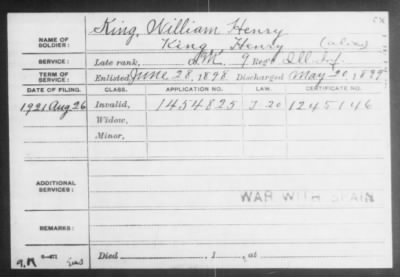 NAME OF SOLDIER: King, William Henry
King Henry (alias)
SERVICE: Late rank, 9 Reg't Ill. Inf.
TERM OF SERVICE: Enlisted June 28, 1898 Discharged May 20, 1899
DATE OF FILING. CLASS. APPLICATION NO. LAW. CERTIFICATE NO.
1921 Aug 26 Invalid, 1454825 J 20 1245146
Widow,
Minor,
ADDITIONAL SERVICES:
WAR WITH SPAIN
REMARKS:
Died , 1 , at